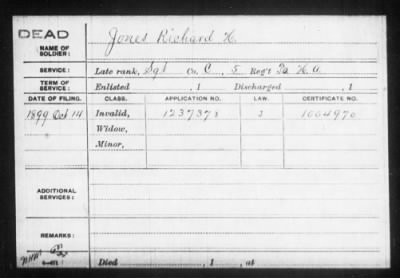 DEAD
NAME OF SOLDIER: Jones Richard H.
SERVICE: Late rank, Sgt Co. C, 5 Reg't Pa H. A.
TERM OF SERVICE: Enlisted , 1 Discharged , 1
DATE OF FILING. CLASS. APPLICATION NO. LAW. CERTIFICATE NO.
1899 Oct 14 Invalid, 1237378 J 1004970
Widow,
Minor,
ADDITIONAL SERVICES:
REMARKS:
Died , 1 , at